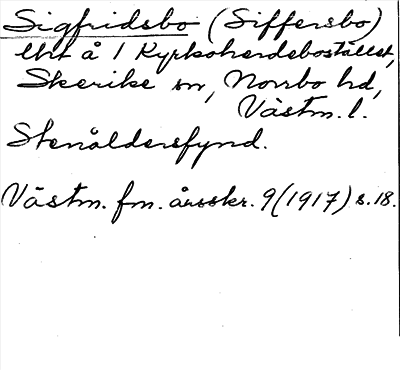 Sigfridsbo (Siffersbo)
lht å 1 Kyrkoherdebostället,
Skerike sn, Norrbo hd,
Västm. l.
Stenåldersfynd.
Västm. fm. årsskr. 9 (1917) s. 18.